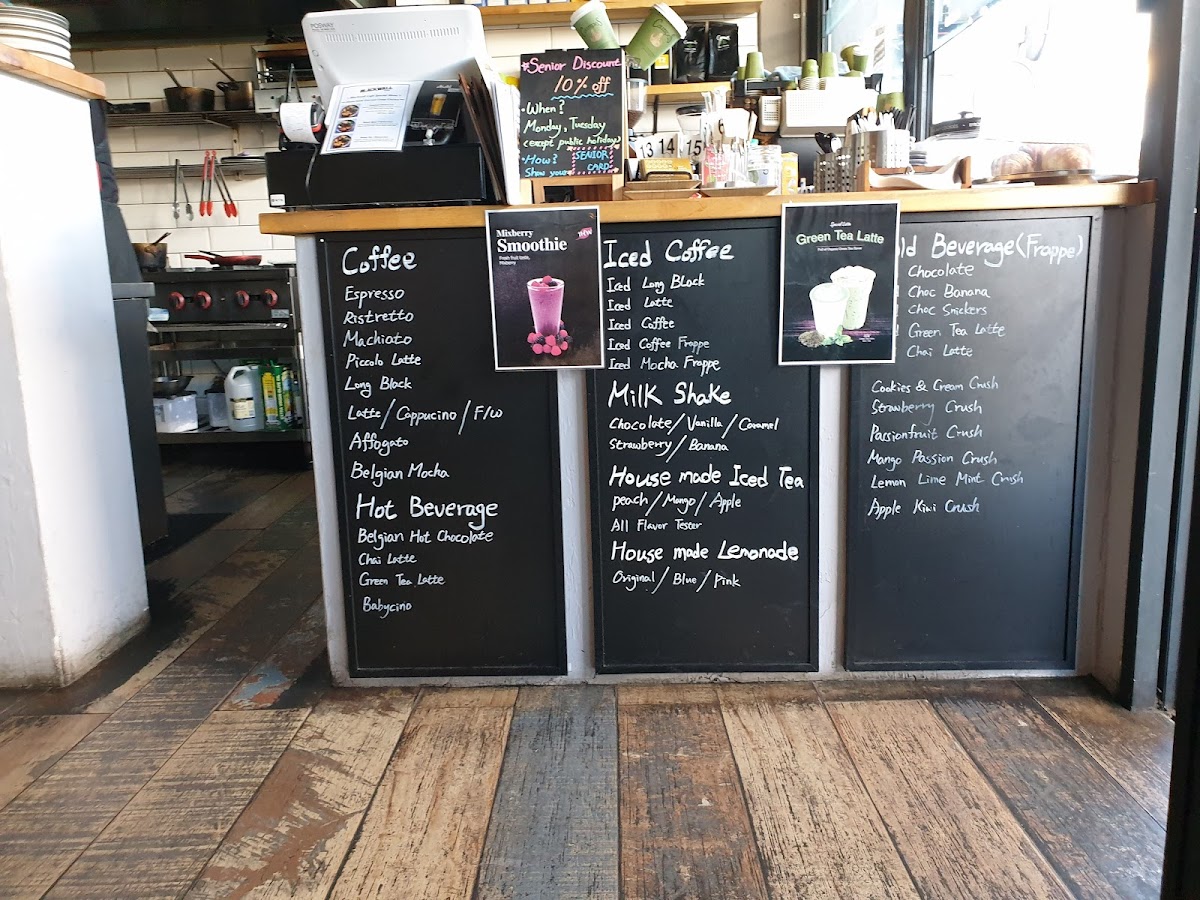 POSWAY
BLACKWELL
#Senior Discount
10% off
• When?
Monday, Tuesday
(except public holiday)
• How?
Show your
SENIOR
CARD
13 14 15
Coffee
Espresso
Ristretto
Machiato
Piccolo Latte
Long Black
Latte/Cappucino/F/W
Affogato
Belgian Mocha
Hot Beverage
Belgian Hot Chocolate
Chai Latte
Green Tea Latte
Babycino
Mixberry
Smoothie
Iced Coffee
Iced Long Black
Iced Latte
Iced Coffee
Iced Coffee Frappe
Iced Mocha Frappe
Milk Shake
Chocolate/Vanilla/Caramel
Strawberry/Banana
House made Iced Tea
peach/Mango/Apple
All Flavor Tester
House made Lemonade
Original/Blue/Pink
Green Tea Latte
Beverage(Frappe)
Chocolate
Choc Banana
Choc Snickers
Green Tea Latte
Chai Latte
Cookies & Cream Crush
Strawberry Crush
Passionfruit Crush
Mango Passion Crush
Lemon Lime Mint Crush
Apple Kiwi Crush